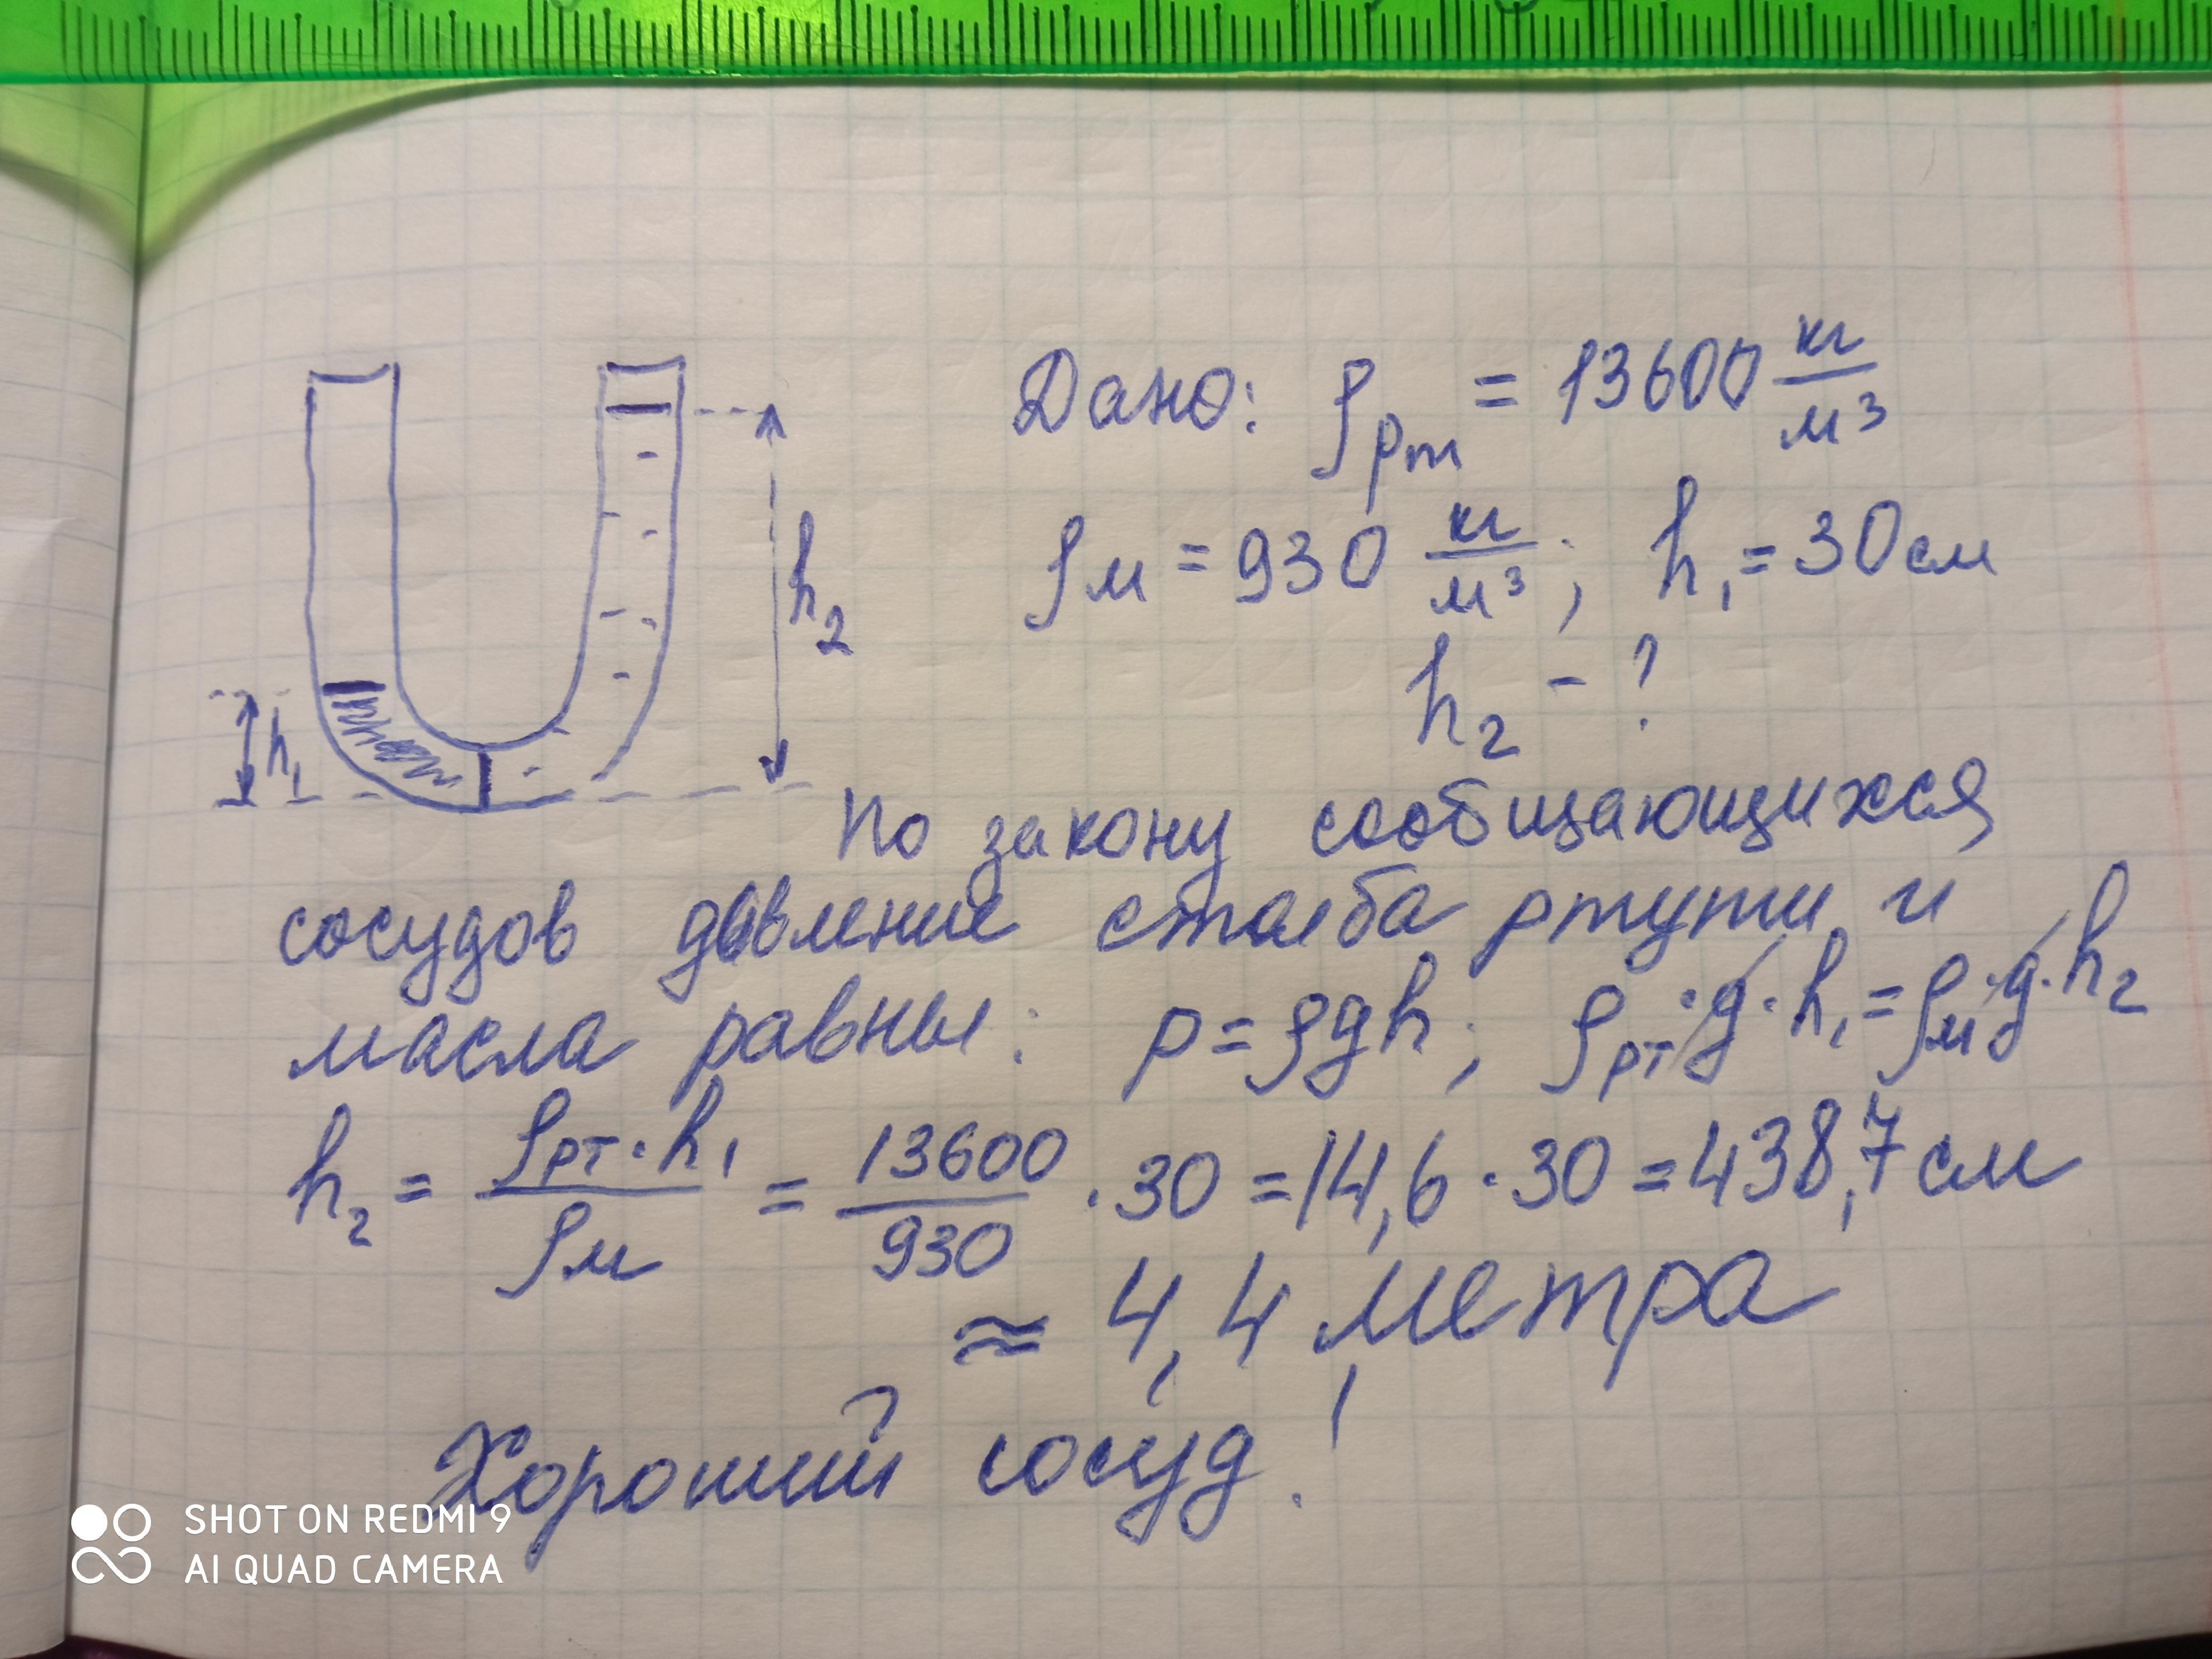 Дано: ρрт = 13600 кг/м³
ρм = 930 кг/м³; h₁ = 30 см
h₂ - ?
h₂
h₁
По закону сообщающихся
сосудов давление столба ртути и
масла равны: p = ρgh; ρрт·g·h₁ = ρм·g·h₂
h₂ = ρрт·h₁/ρм = 13600/930 · 30 = 14,6 · 30 = 438,7 см
≈ 4,4 метра
Хороший сосуд!
SHOT ON REDMI 9
AI QUAD CAMERA